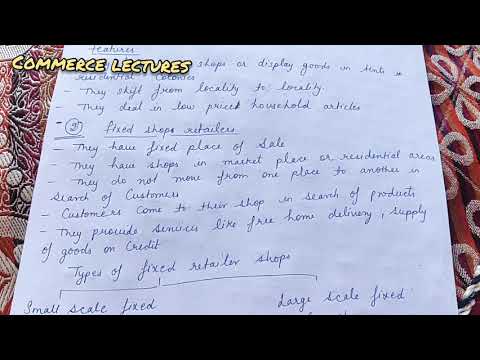 Commerce lectures
features
shops or display goods in tents in
residential Colonies
- They shift from locality to locality.
- They deal in low priced household articles
- ② fixed shops retailers
- They have fixed place of Sale
- They have shops in market place or residential areas
- They do not move from one place to another in
Search of Customers
- Customers come to their shop in search of products
- They provide services like free home delivery, supply
of goods on Credit
Types of fixed retailer shops
Small scale fixed
Large scale fixed